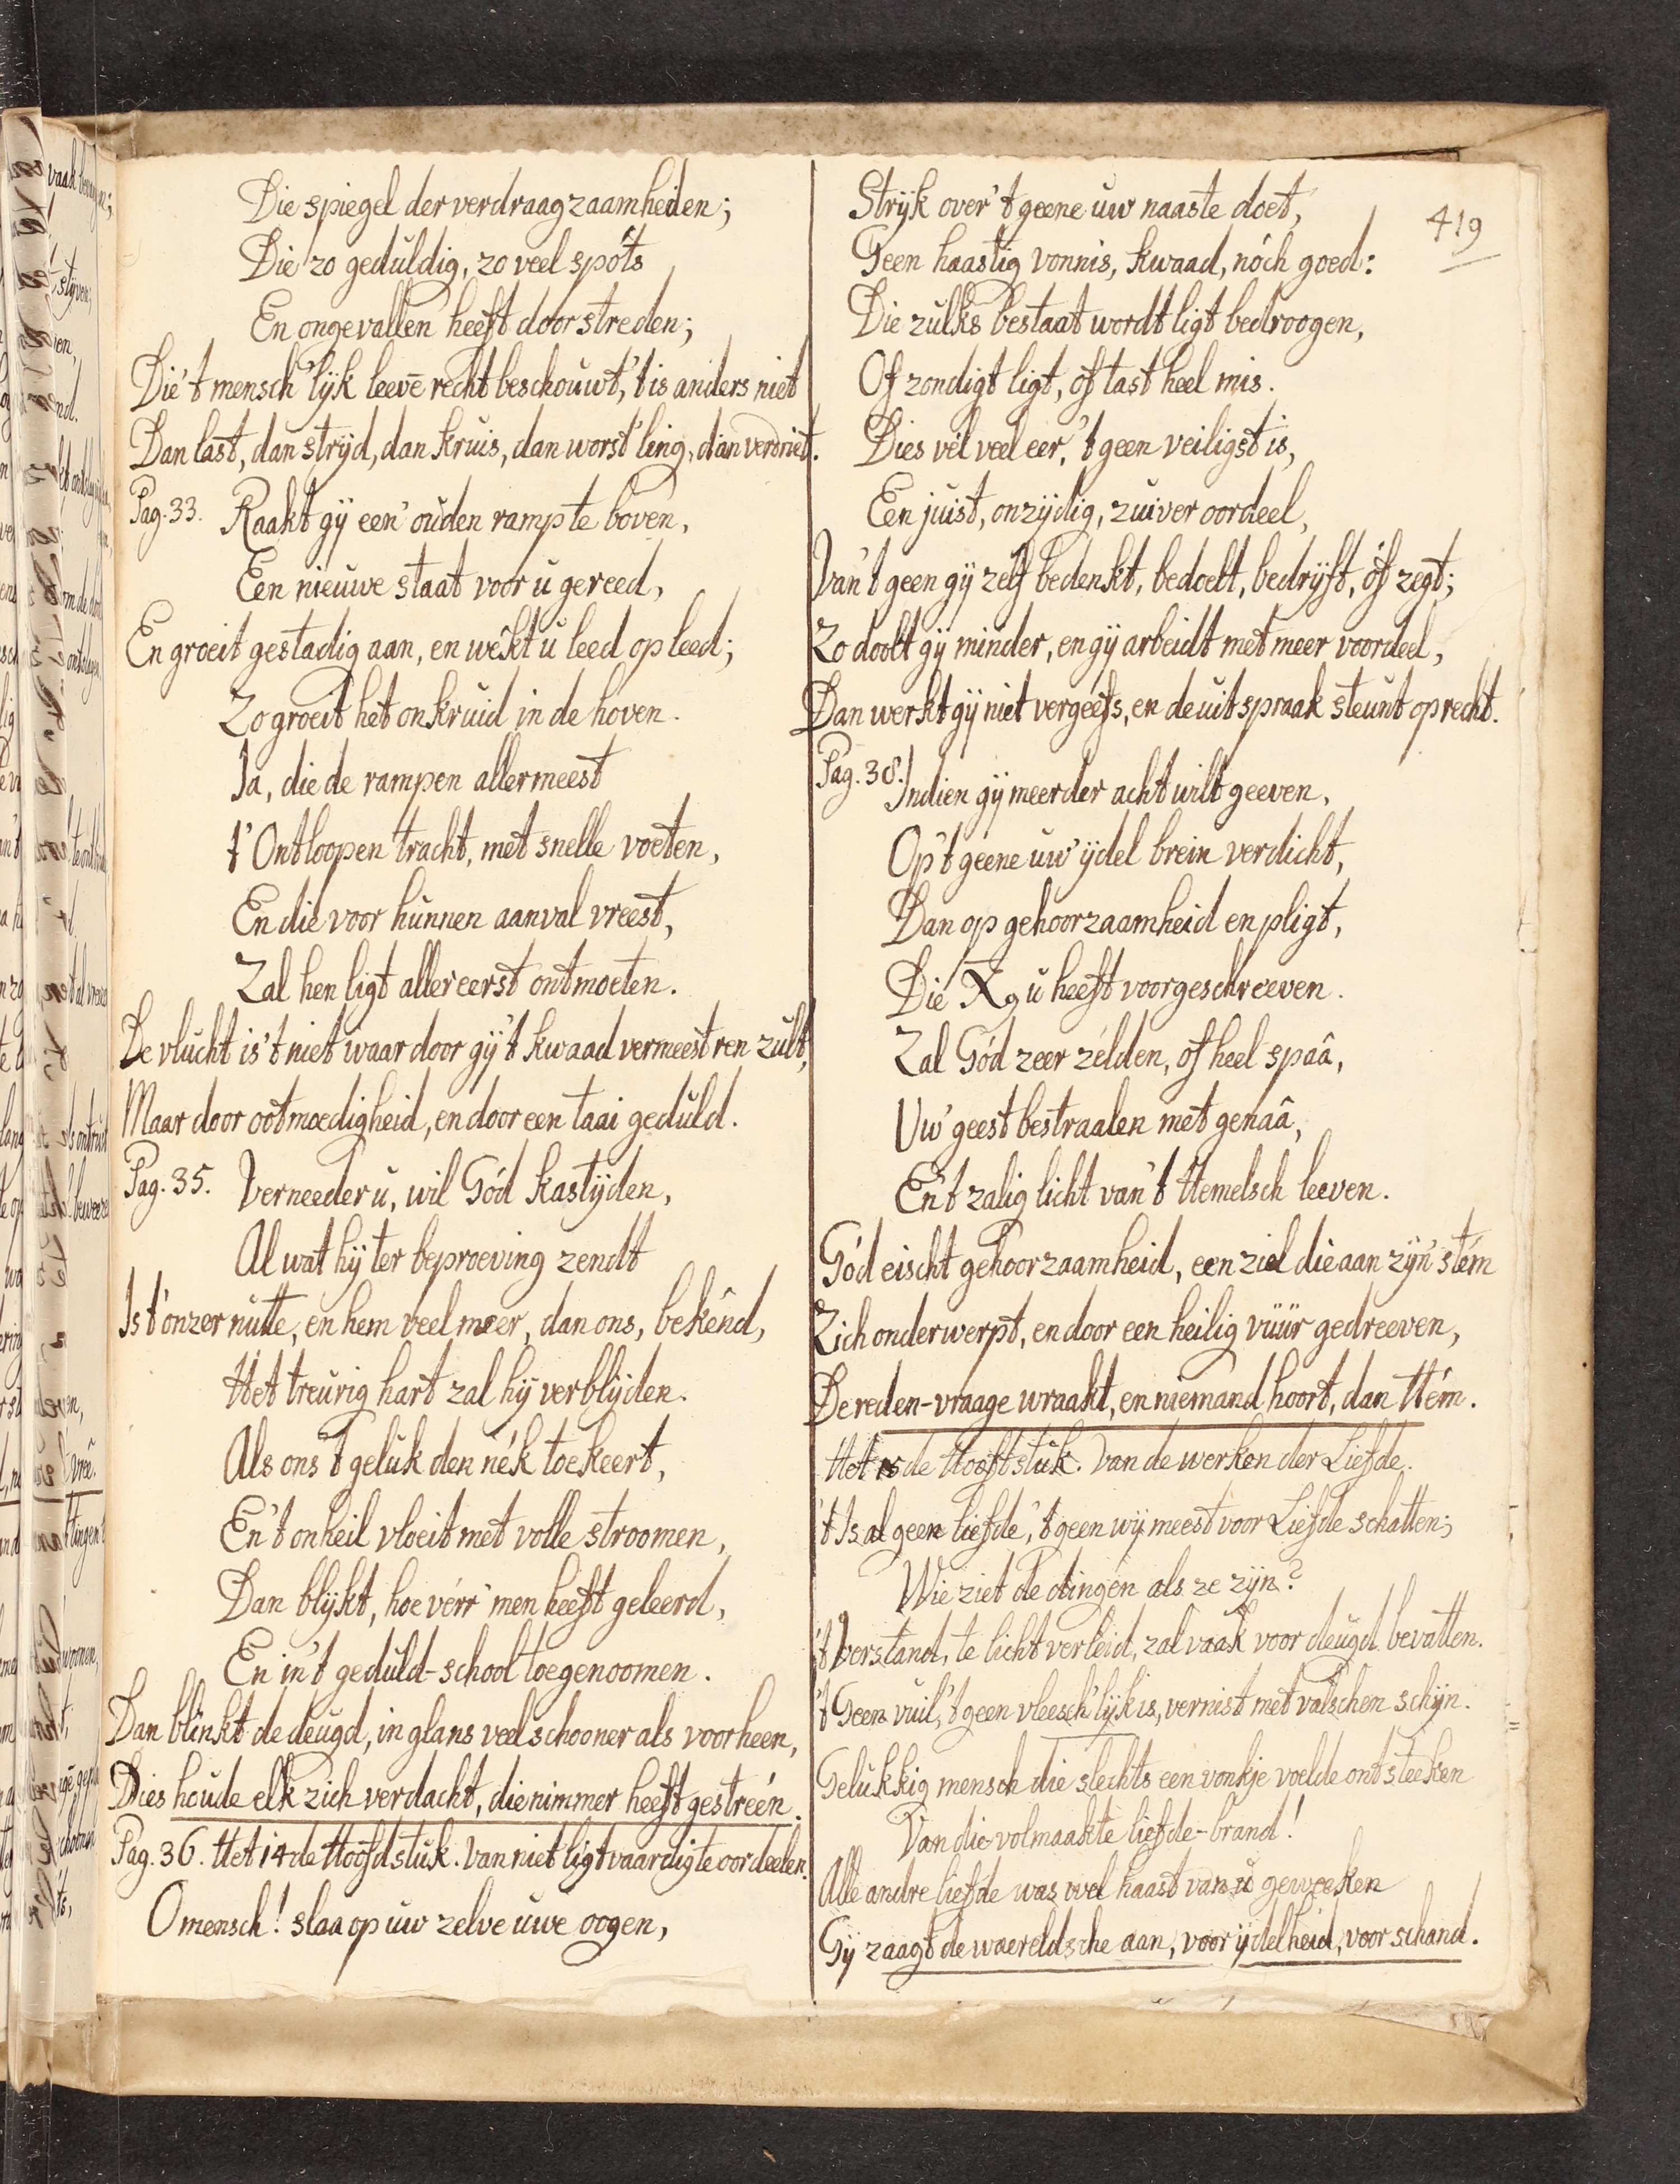 Die spiegel der verdraagzaamheiden;
Die zo geduldig, zo veel spóts
En ongevallen heeft doorstreden;
Die 't mensch'lÿk leevē recht beschouwt, 't is anders niet
Dan last, dan strÿd, dan kruis, dan worst'ling, dan verdriet.
Pag. 33. Raakt gÿ een' ouden ramp te boven,
Een nieuwe staat voor u gereed,
En groeit gestadig aan, en wekt u leed op leed;
Zo groeit het onkruid in de hoven.
Ja, die de rampen allermeest
t' Ontloopen tracht, met snelle voeten,
En die voor hunnen aanval vreest,
Zal hen ligt allereerst ontmoeten.
De vlucht is 't niet waar door gÿ 't kwaad vermeest'ren zult,
Maar door ootmoedigheid, en door een taai geduld.
Pag. 35. Verneeder u, wil Gód kastÿden,
Al wat hÿ ter beproeving zendt
Is t' onzer nutte, en hem veel meer, dan ons, bekēnd,
Het treurig hart zal hÿ verblÿden.
Als ons 't geluk den nék toekeert,
En 't onheil vloeit met volle stroomen,
Dan blÿkt, hoe vérr' men heeft geleerd,
En in 't geduld-school toegenoomen.
Dan blinkt de deugd, in glans veel schooner als voorheen,
Dies houde elk zich verdacht, die nimmer heeft gestreén.
Pag. 36. Het 14de Hoofdstuk. Van niet ligtvaardig te oordeelen.
O mensch! slaa op uw zelve uwe oogen,
419
Strÿk over 't geene uw naaste doet,
Geen haastig vonnis, kwaad, nóch goed:
Die zulks bestaat wordt ligt bedroogen,
Of zondigt ligt, óf tast heel mis.
Dies vel veel eer, 't geen veiligst is,
Een juist, onzÿdig, zuiver oordeel,
Van 't geen gÿ zelf bedenkt, bedoelt, bedrÿft, óf zegt;
Zo doolt gÿ minder, en gÿ arbeidt met meer voordeel,
Dan werkt gÿ niet vergeefs, en de uitspraak steunt op recht.
Pag. 38. Indien gÿ meerder acht wilt geeven,
Op 't geene uw' ÿdel brein verdicht,
Dan op gehoorzaamheid en pligt,
Die X9 u heeft voorgeschreeven.
Zal Gód zeer zelden, of heel spaâ,
Uw' geest bestraalen met genaâ,
En 't zalig licht van 't Hemelsch leeven.
Gód eischt gehoorzaamheid, een ziel die aan zÿn' stém
Zich onderwerpt, en door een heilig vüür gedreeven,
De reden-vraage wraakt, en niemand hoort, dan Hém.
Het 15de Hooftstuk. Van de werken der Liefde.
't Is al geen liefde, 't geen wÿ meest voor Liefde schatten;
Wie ziet de dingen als ze zÿn?
't Verstand, te licht verleid, zal vaak voor deugd bevatten.
't Geen vuil, 't geen vleesch'lÿk is, vernist met valschen schÿn.
Gelukkig mensch die slechts een vonkje voelde ontsteeken
Van die volmaakte liefde-brand!
Alle andre liefde was wel haast van u geweeken
Gÿ zaagt de waereldsche aan, voor ÿdelheid, voor schand.